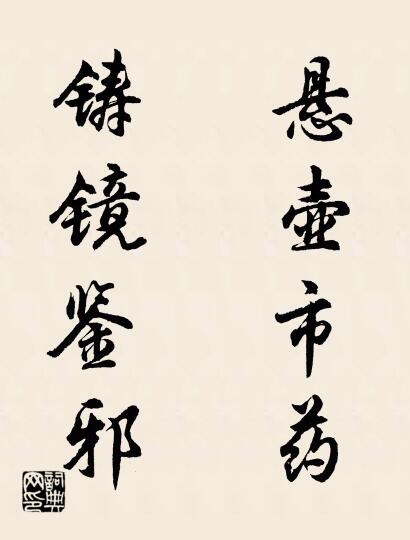 悬壶市药
铸镜鉴邪
词典网印